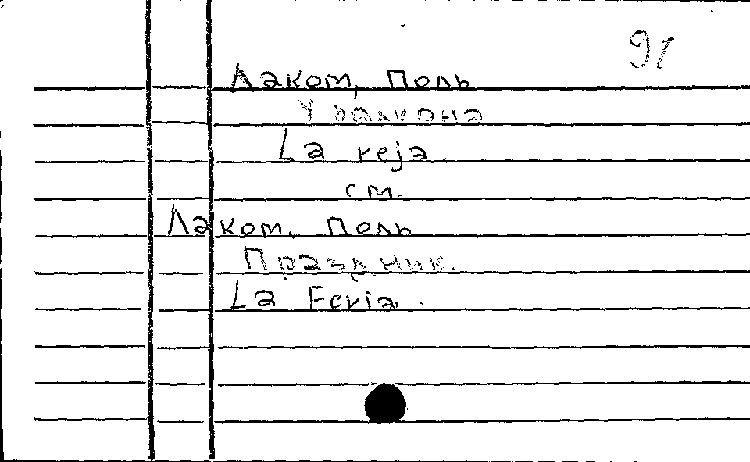 91
Лаком, Поль
У балкона
La reja.
см.
Лаком, Поль
Праздник.
La Feria.